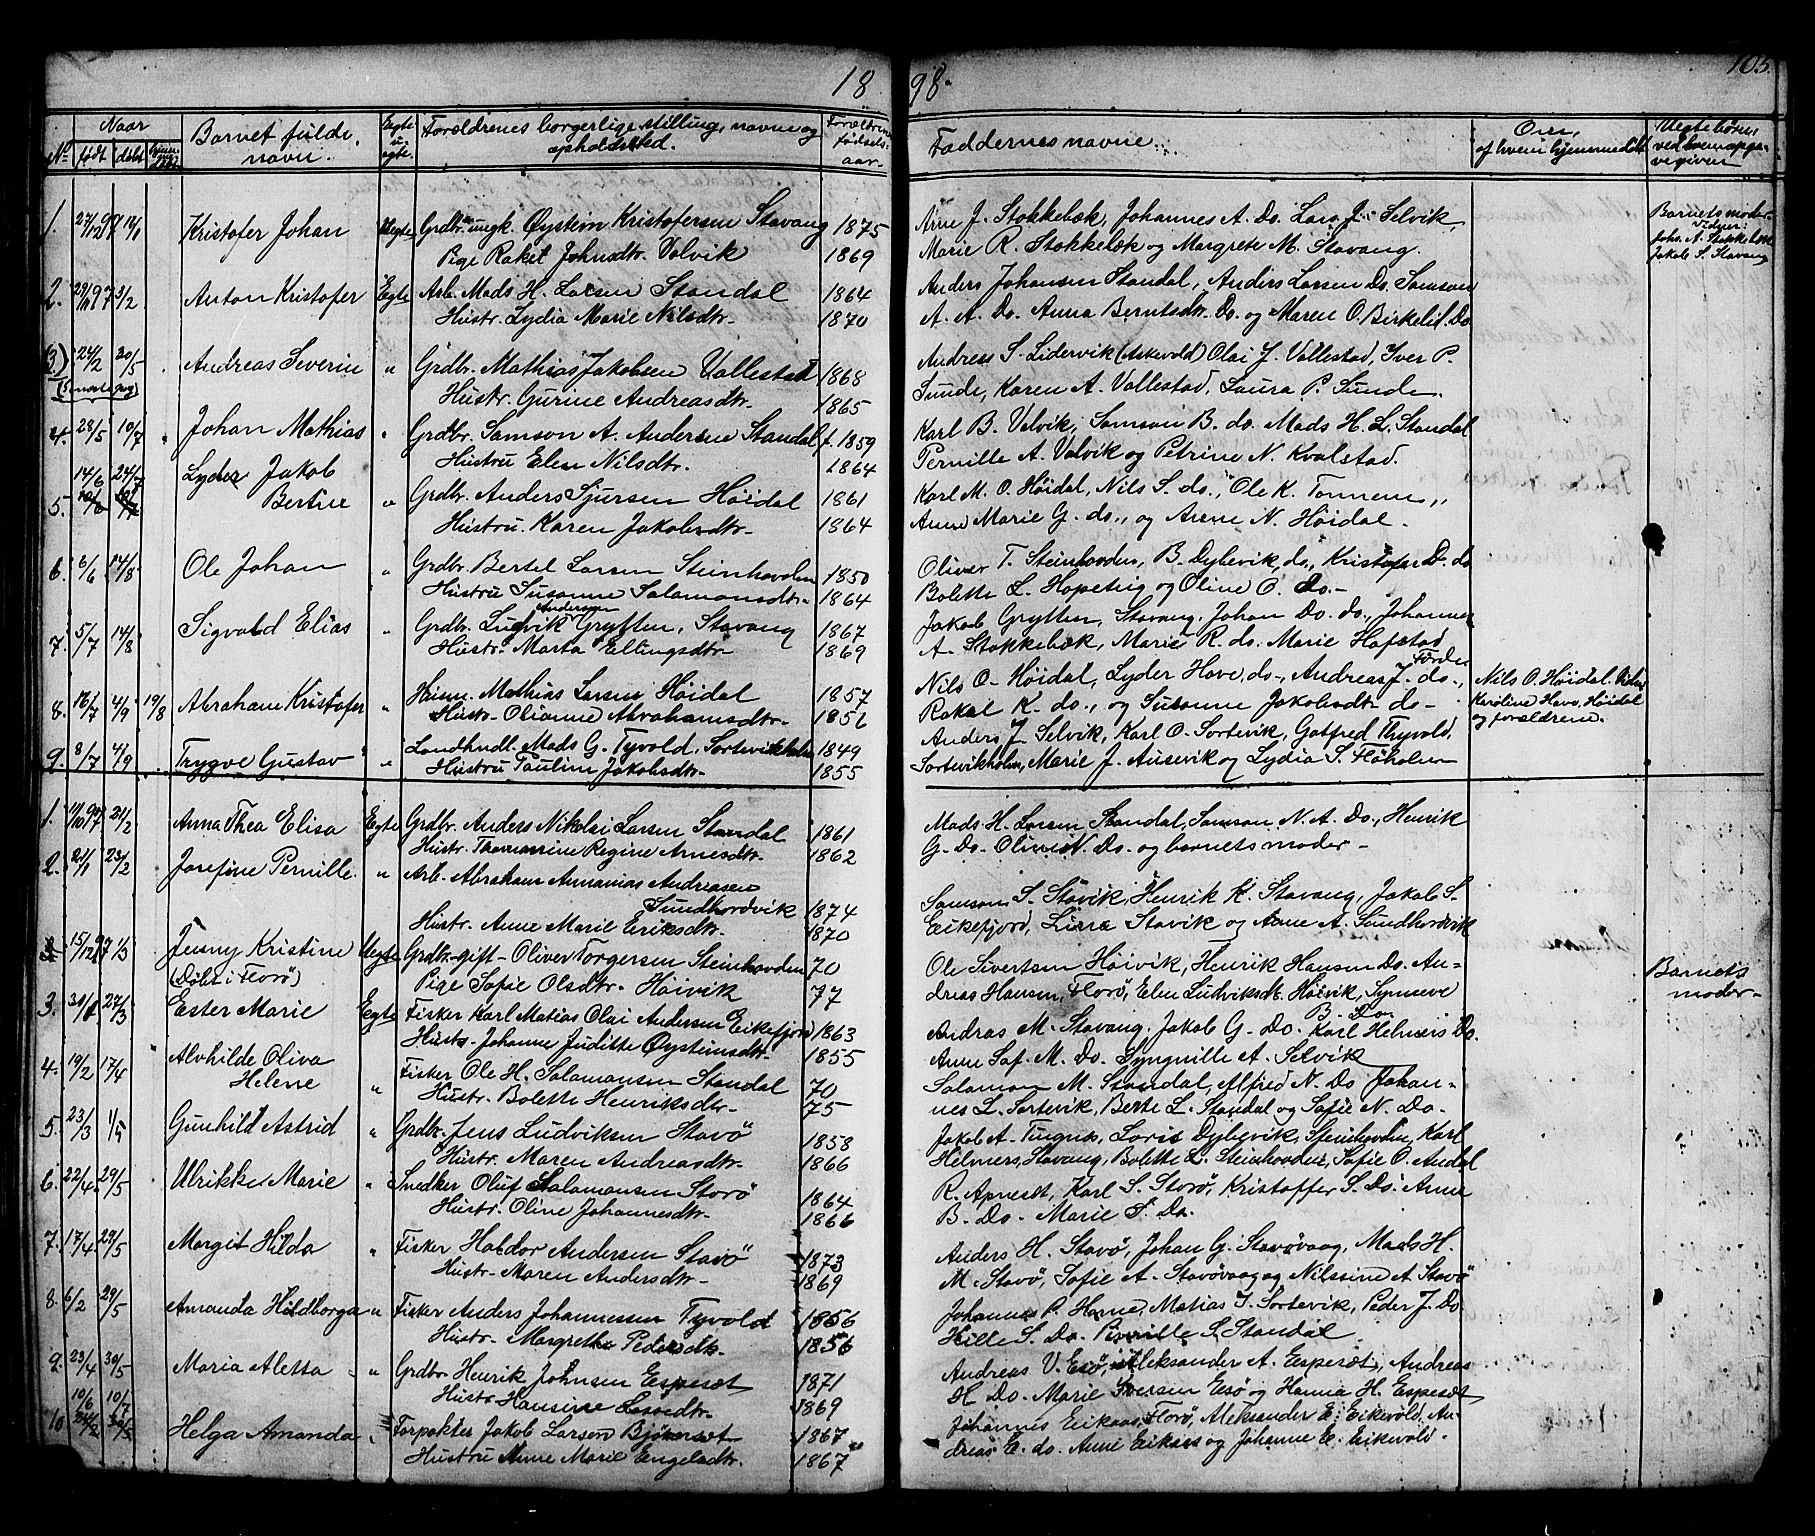 18
98.
103.
Naar
No født døbt
Barnet fulde navn.
Egte u. egte.
Forældrenes borgerlige stilling, navne og opholdsted.
Forældrenes fødsels-aar.
Faddernes navne.
Om, af hvem hjemmedøbt
Uegte børn, ved hvem opgivesgiven
1. 27/12 97 14/1 Kristofer Johan Uegte Grdbr. ungk. Øystein Kristofersen Stavang 1875
Pige Rakel Johnsdtr. Valvik 1869
Arne J. Stokkebæk, Johannes A. Do. Lars J. Selvik,
Marie R. Stokkebæk og Margrete M. Stavang.
Barnets moder.
Jakob S. Stavang
2. 29/11 97 3/2 Anton Kristofer Egte Arb. Mads H. Larsen Standal 1864
Hustr. Lydia Marie Nilsdtr. 1870
Anders Johansen Standal, Anders Larsen Do. Samson
A. A. Do. Anna Berntsdtr. Do. og Maren O. Birkelid. Do
(3) 24/2 20/5 Andreas Severin " Grdbr. Mathias Jakobsen Vallestad 1868
Hustr. Gurine Andreasdtr. 1865
Andreas S. Lidervik (Askevold) Olai J. Vallestad, Iver P.
Sunde, Karen A. Vallestad, Laura P. Sunde.
4. 28/5 10/7 Johan Mathias " Grdbr. Samson A. Andersen Standal f. 1859
Hustru Elen Nilsdtr. 1864
Karl B. Valvik, Samson B. do. Mads H. L. Standal
Pernille A. Valvik og Petrine N. Kvalstad.
5. 14/6 24/7 Lyder Jakob Bertin " Grdbr. Anders Sjursen Høidal 1861
Hustru. Karen Jakobsdtr. 1864
Karl M. O. Høidal, Nils S. do., Ole K. Tonnem,
Anne Marie G. do., og Anne N. Høidal.
6. 6/6 14/8 Ole Johan " Grdbr. Bertel Larsen Steinhovden 1850
Hustru Susanne Salamonsdtr. 1864
Oliver T. Steinhovden, B. Dybevik, do., Kristofer D. do
Bolette L. Hopeteig og Oline O. Do.
7. 5/7 14/8 Sigvald Elias " Grdbr. Ludvik Andersen Grytten, Stavang 1867
Hustr. Marta Ellingsdtr. 1869
Jakob Grytten, Stavang, Johan Do. do., Johannes
A. Stokkebæk, Marie R. do. Marie Hafstad Førde
8. 16/7 4/9 19/8 Abraham Kristofer " Husm. Mathias Larsen Høidal 1857
Hustr. Olianne Abrahamsdtr. 1856
Nils O. Høidal, Lyder Hove, do., Andreas J. do.,
Rakel K. do., og Susanne Jakobsdt. do
Nils O. Høidal.
Karoline Hove, Høidal
og forældrene.
9. 8/7 4/9 Trygve Gustav " Landhndl. Mads G. Tyvold, Sortevikholm 1849
Hustru Pauline Jakobsdtr. 1855
Anders J. Selvik, Karl O. Sortevik, Gotfred Thyvold,
Sortevikholm, Marie J. Ausevik og Lydia S. Fløholm
1. 11/10 97 21/2 Anna Thea Elisa Egte Grdbr. Anders Nikolai Larsen Standal 1861
Hustr. Thomassine Regine Arnesdtr. 1862
Mads H. Larsen Standal, Samson N. A. Do., Henrik
G. Do. Oline N. Do. og barnets moder
2. 21/1 23/2 Josefine Pernille. " Arb. Abraham Annanias Andreasen
Sundhordvik 1874
Hustr. Anne Marie Eriksdtr. 1870
Samson S. Støvik, Henrik K. Stavang, Jakob S.
Eikefjord, Lina Stavik og Anne A. Sundhordvik
15/12 97 1/3 Jenny Kristine Uegte Grdbr. gift. Oliver Torgersen Steinhovden 70
(Døbt i Florø) Pige Sofie Olsdtr. Høivik 77
Ole Sivertsen Høivik, Henrik Hansen Do. An-
dreas Hansen, Florø, Elen Ludviksdt. Høivik, Synneve B. Do.
Barnets moder
3. 27/3 Ester Marie Egte Fisker Karl Matias Olai Andersen Eikefjord 1863
Hustr. Johanne Juditte Øysteinsdtr. 1855
Andras M. Stavang, Jakob G. Do. Karl Helmers Do.
Anne Sof. M. Do. A. Selvik
4. 19/2 17/4 Alvhilde Oliva Helene " Fisker Ole H. Salamonsen Standal 70
Hustr. Bolette Henriksdtr. 75
Salamon M. Standal, Alfred N. Do. Johan-
nes L. Sortevik, Berte L. Standal og Sofie N. Do.
5. 23/3 1/5 Gunhild Astrid " Grdbr. Jens Ludviksen Stavø 1858
Hustr. Maren Andreasdtr. 1866
Jakob A. Tingnes, Loris Dybevik, Steinhovden, Karl
Helmers, Stavang, Bolette L. Steinhovden, Sofie O. Andal
6. 22/4 29/5 Ulrikke Marie " Snedker Oluf Salamonsen Storø 1864
Hustr. Oline Johannesdtr. 1866
R. Karl S. Storø, Kristoffer S. Do. Anne
B. Do. Marie S. Do.
7. 17/4 29/5 Margit Hilda " Fisker Haldor Andersen Stavø 1873
Hustr. Maren Andersdtr. 1869
Anders H. Stavø, Johan G. Stavøvaag, Mads H.
M. Stavø, Sofie A. Stavøvaag og Nilssine A. Stavø
8. 6/2 29/5 Amanda Hildborga " Fisker Anders Johannessen Tyvold 1856
Hustr. Margrethe Pedersdtr. 1856
Johannes P. Horne, Matias I. Sortevik, Peder J. Do.
Hille S. Do. Pernille L. Standal
9. 23/4 30/5 Maria Aletta " Grdbr. Henrik Johnsen Espeset 1871
Hustr. Hansine 1869
Andreas V. Esø, Aleksander A. Espeset, Andreas
H. Do. Marie Iversen Esø og Hanna H. Espeset
10 10/6 10/7 Helga Amanda " Forpakter Jakob Larsen Bjørnset 1867
Hustru Anne Marie Engelsdtr. 1867
Johannes Eikaas, Florø, Aleksander E. Eikevold, An-
dreas E. do. Anne Eikaas og Johanne E. Eikevold.